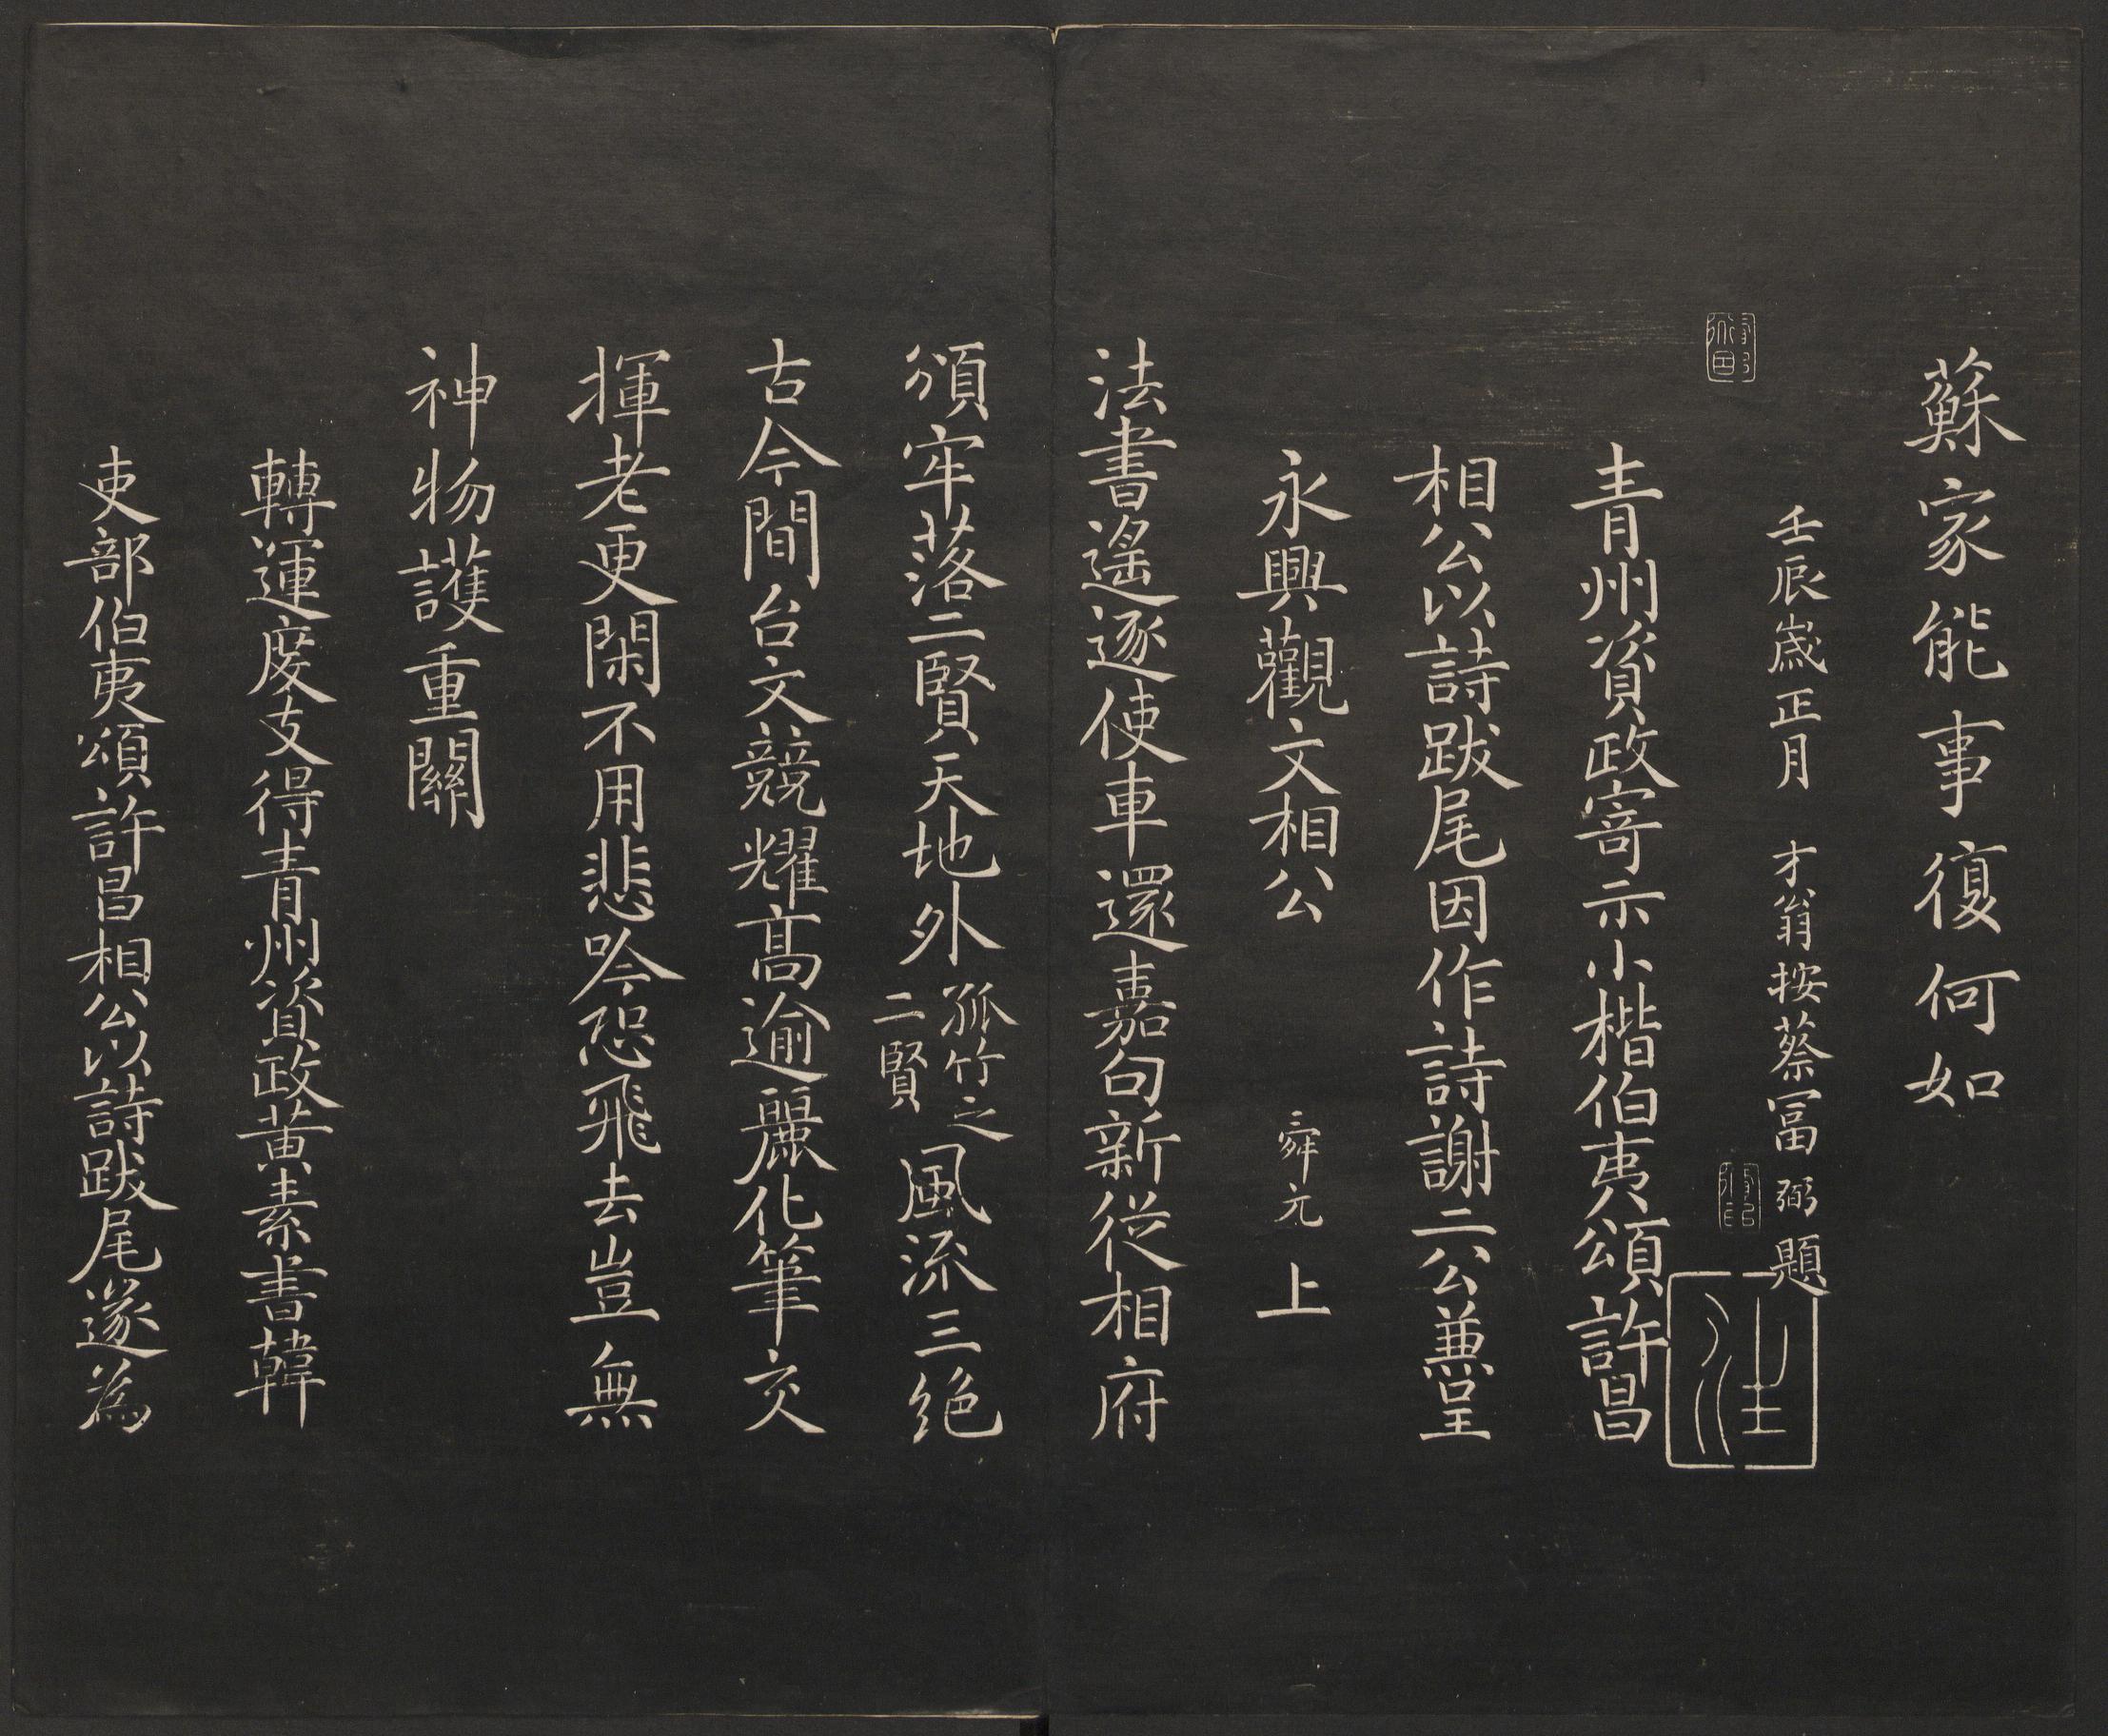 蘇家能事復何如
壬辰歲正月 才翁按蔡冨弼題
青州資政寄示小楷伯夷頌許昌
相公以詩跋尾因作詩謝二公兼呈
永興觀文相公 舜元 上
法書遙逐使車還嘉句新從相府
頒牢落二賢天地外孤竹之二賢風流三絶
古今間台文競耀高逾麗化筆交
揮老更閑不用悲吟恐飛去豈無
神物護重關
轉運度支得青州資政黃素書韓
吏部伯夷頌許昌相公以詩跋尾遂為